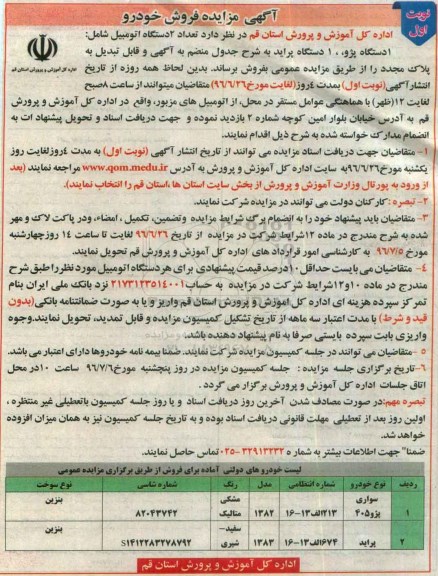 نوبت اول
آگهی مزایده فروش خودرو
اداره کل آموزش و پرورش استان قم
اداره کل آموزش و پرورش استان قم در نظر دارد تعداد ۲دستگاه اتومبیل شامل:
۱دستگاه پژو، ۱ دستگاه پراید به شرح جدول منضم به آگهی و قابل تبدیل به
پلاک مجدد را از طریق مزایده عمومی بفروش برساند. بدین لحاظ همه روزه از تاریخ
انتشار آگهی (نوبت اول) بمدت ۴روز (لغایت مورخ۹۶/۶/۲۶) متقاضیان میتوانند از ساعت ۸صبح
لغایت ۱۲(ظهر) با هماهنگی عوامل مستقر در محل، از اتومبیل های مزبور، واقع در اداره کل آموزش و پرورش
قم به آدرس خیابان بلوار امین کوچه شماره ۲ بازدید نموده و جهت دریافت اسناد و تحویل پیشنهاد ات به
انضمام مدارک خواسته شده به شرح ذیل اقدام نمایند.
۱- متقاضیان جهت دریافت اسناد مزایده می توانند از تاریخ انتشار آگهی (نوبت اول) به مدت ۴روز لغایت روز
یکشنبه مورخ۹۶/۶/۲۶به سایت اداره کل آموزش و پرورش به آدرس www.qom.medu.ir مراجعه نمایند (بعد
از ورود به پورتال وزارت آموزش و پرورش از بخش سایت استان ها ،استان قم را انتخاب نمایند).
۲- تبصره : کارکنان دولت می توانند در مزایده شرکت نمایند.
۳- متقاضیان باید پیشنهاد خود را به انضمام برگ شرایط مزایده وتضمین، تکمیل ، امضاء، ودر پاکت لاک و مهر
شده به شرح مندرج در ماده ۱۲شرایط شرکت در مزایده از تاریخ ۹۶/۶/۲۶ لغایت تا ساعت ۱۴ روزچهارشنبه
مورخ ۹۶/۷/۵ به کارشناسی امور قرارداد های اداره کل آموزش و پرورش قم تحویل نمایند.
۴- متقاضیان می بایست حداقل ۱۰درصدقیمت پیشنهادی برای هردستگاه اتومبیل موردنظر را طبق شرح
مندرج در ماده ۱۰و۱۲شرایط شرکت در مزایده به حساب۲۱۷۳۱۲۳۵۱۴۰۰۱ نزد بانک ملی ایران بنام
تمرکز سپرده هزینه ای اداره کل اموزش و پرورش استان قم واریز و یا به صورت ضمانتنامه بانکی (بدون
قید و شرط) با مدت اعتبار سه ماهه از تاریخ تشکیل کمیسیون مزایده و قابل تمدید، تحویل نمایند.وجوه
واریزی بابت سپرده بایستی صرفا به نام پیشنهاد دهنده باشد.
۵ -متقاضیان می توانند در جلسه کمیسیون مزایده شرکت نمایند. ضمنا بیمه نامه خودروها دارای اعتبار می باشد.
۶-تاریخ برگزاری جلسه مزایده : جلسه کمیسیون مزایده در روز پنجشنبه مورخ۹۶/۷/۶ ساعت ۱۰در محل
اتاق جلسات اداره کل آموزش و پرورش برگزار می گردد .
تبصره مهم:در صورت مصادف شدن آخرین روز دریافت اسناد و یا روز جلسه کمیسیون باتعطیلی غیر منتظره ،
اولین روز بعد از تعطیلی مهلت قانونی دریافت اسناد بوده و به تاریخ جلسه کمیسیون نیز به همان میزان افزوده
خواهد شد.
ضمنا" جهت اطلاعات بیشتر به شماره ۳۲۹۱۳۲۳۲-۰۲۵ تماس حاصل نمایند.
لیست خودرو های دولتی آماده برای فروش از طریق برگزاری مزایده عمومی
ردیف نوع خودرو شماره انتظامی مدل رنگ شماره شاسی نوع سوخت
۱ سواری پژو۴۰۵ ۲۱۳الف۱۳-۱۶ ۱۳۸۲ مشکی متالیک ۸۲۰۴۳۷۴۲ بنزین
۲ پراید ۶۷۴الف۱۳-۱۶ ۱۳۸۳ سفید- شیری S۱۴۱۲۲۸۳۲۷۸۷۹۲ بنزین
اداره کل آموزش و پرورش استان قم